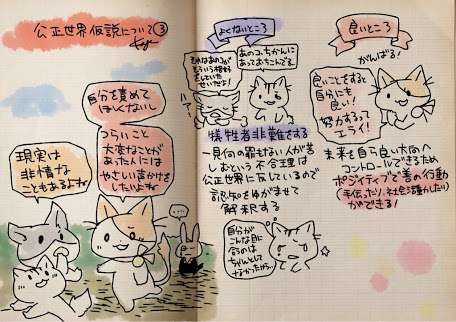 公正世界仮説について③
自分を責めて
ほしくないし
つらいこと
大変なことが
あった人には
やさしい声かけを
したいよね
現実は
非情な
こともあるよね
…
よくないところ
それはあのコが
していた
せいだよ!
あのコ、ちかんに
あっておちこんでる。
ハァ〜
犠牲者非難をする
一見何の罪もない人が苦
しむという不合理は
公正世界に反しているので
認知をゆがませて
解釈する
自分が
こんな目に
合うのは
ちゃんとして
なかったから…
良いところ
がんばる!
良いことをすると
自分にも
良い!
努力するって
エライ!
未来を自ら良い方向へ
コントロールできるため
ポジティブで善い行動
(手伝ったり、社会活動したり)
ができる!